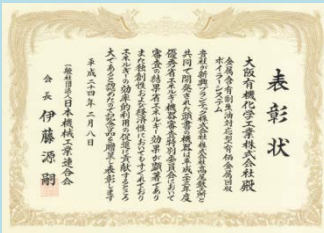 表彰状
大阪有機化学工業株式会社殿
金属含有副生油対応型有価金属回収
ボイラーシステム
貴社が新興プランテック株式会社株式会社高尾鉄工所と
共同で開発された頭書の機器は平成二十三年度
優秀省エネルギー機器審査特別委員会において
審査の結果省エネルギー効果が顕著であり
また独創性および経済性においてもすぐれており
エネルギーの効率的利用の促進に貢献するところ
大であると認めたので記念の楯を贈呈し表彰します
平成二十四年二月八日
一般社団法人日本機械工業連合会
会長 伊藤源嗣